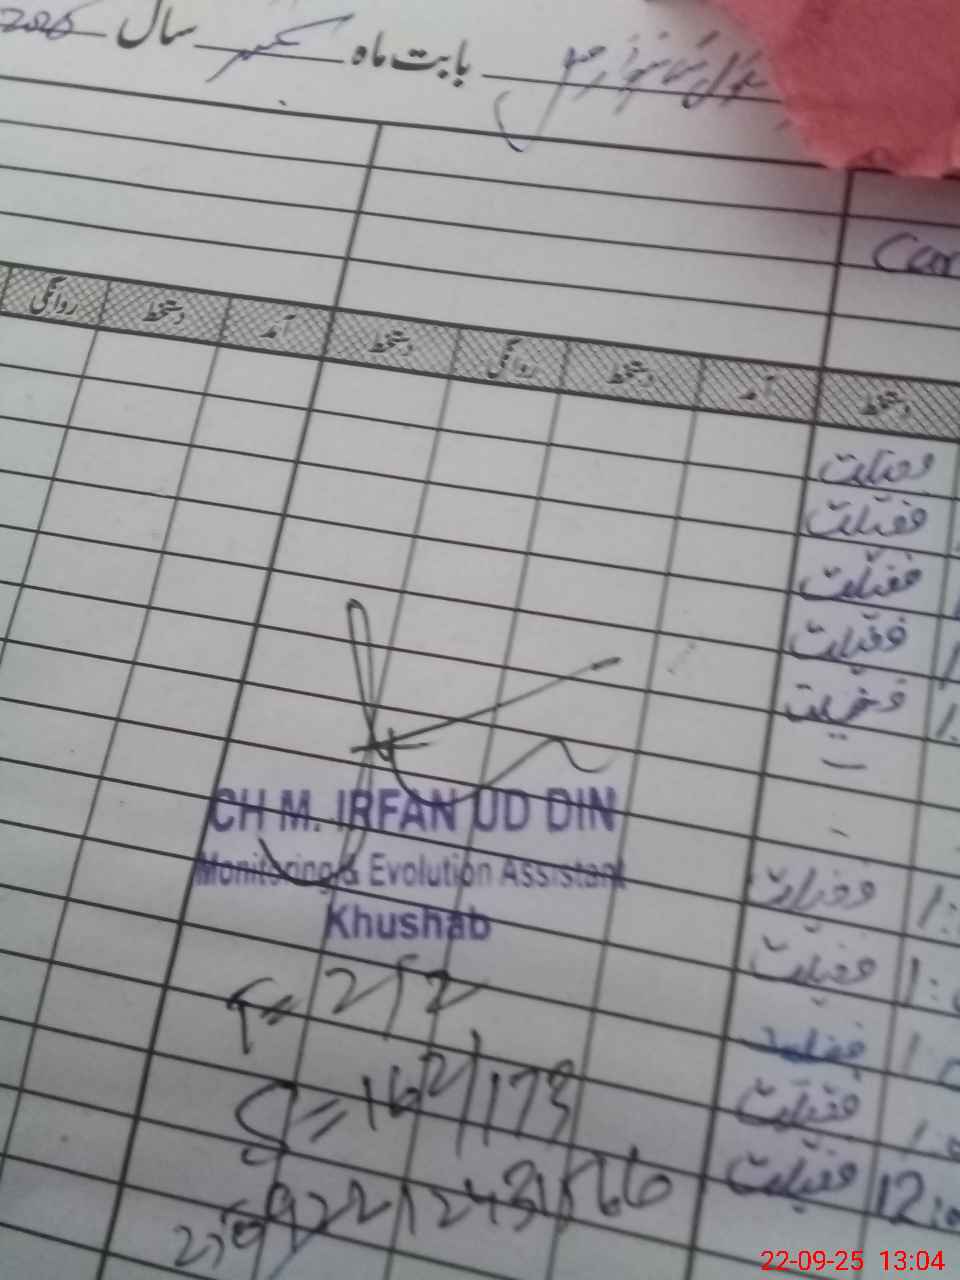 بابت ماہ ستمبر سال 2025
Cen
دستخط آمد دستخط روانگی دستخط آمد دستخط روانگی
فضیلت
فضیلت
فضیلت
فضیلت
فضیلت
فضیلت
فضیلت
فضیلت
فضیلت
فضیلت 12:0
CH M. IRFAN UD DIN
Monitoring & Evolution Assistant
Khushab
T= 2/2
S= 162/173
22-09-25 13:04